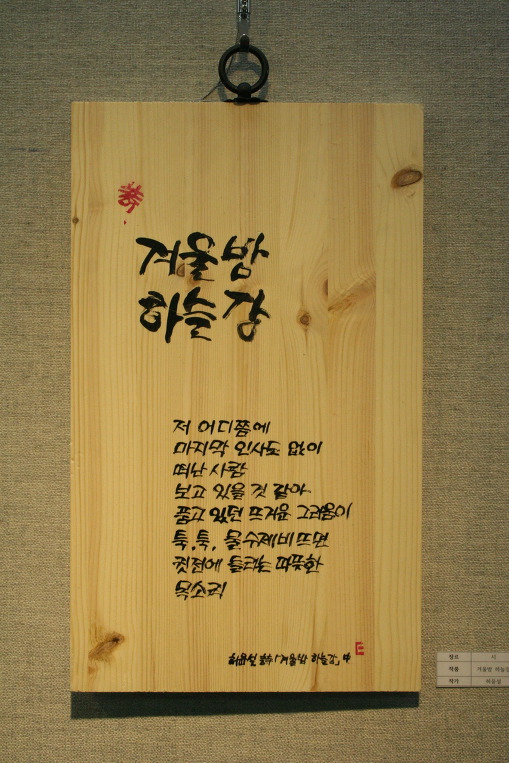 겨울밤
하늘 강
저 어디쯤에
마지막 인사도 없이
떠난 사람
보고 있을 것 같아
품고 있던 뜨거운 그리움이
툭, 툭, 물수제비 뜨면
귓전에 들리는 따뜻한
목소리
겨울밤 하늘강 中
장르
시
작품
겨울밤 하늘강
작가